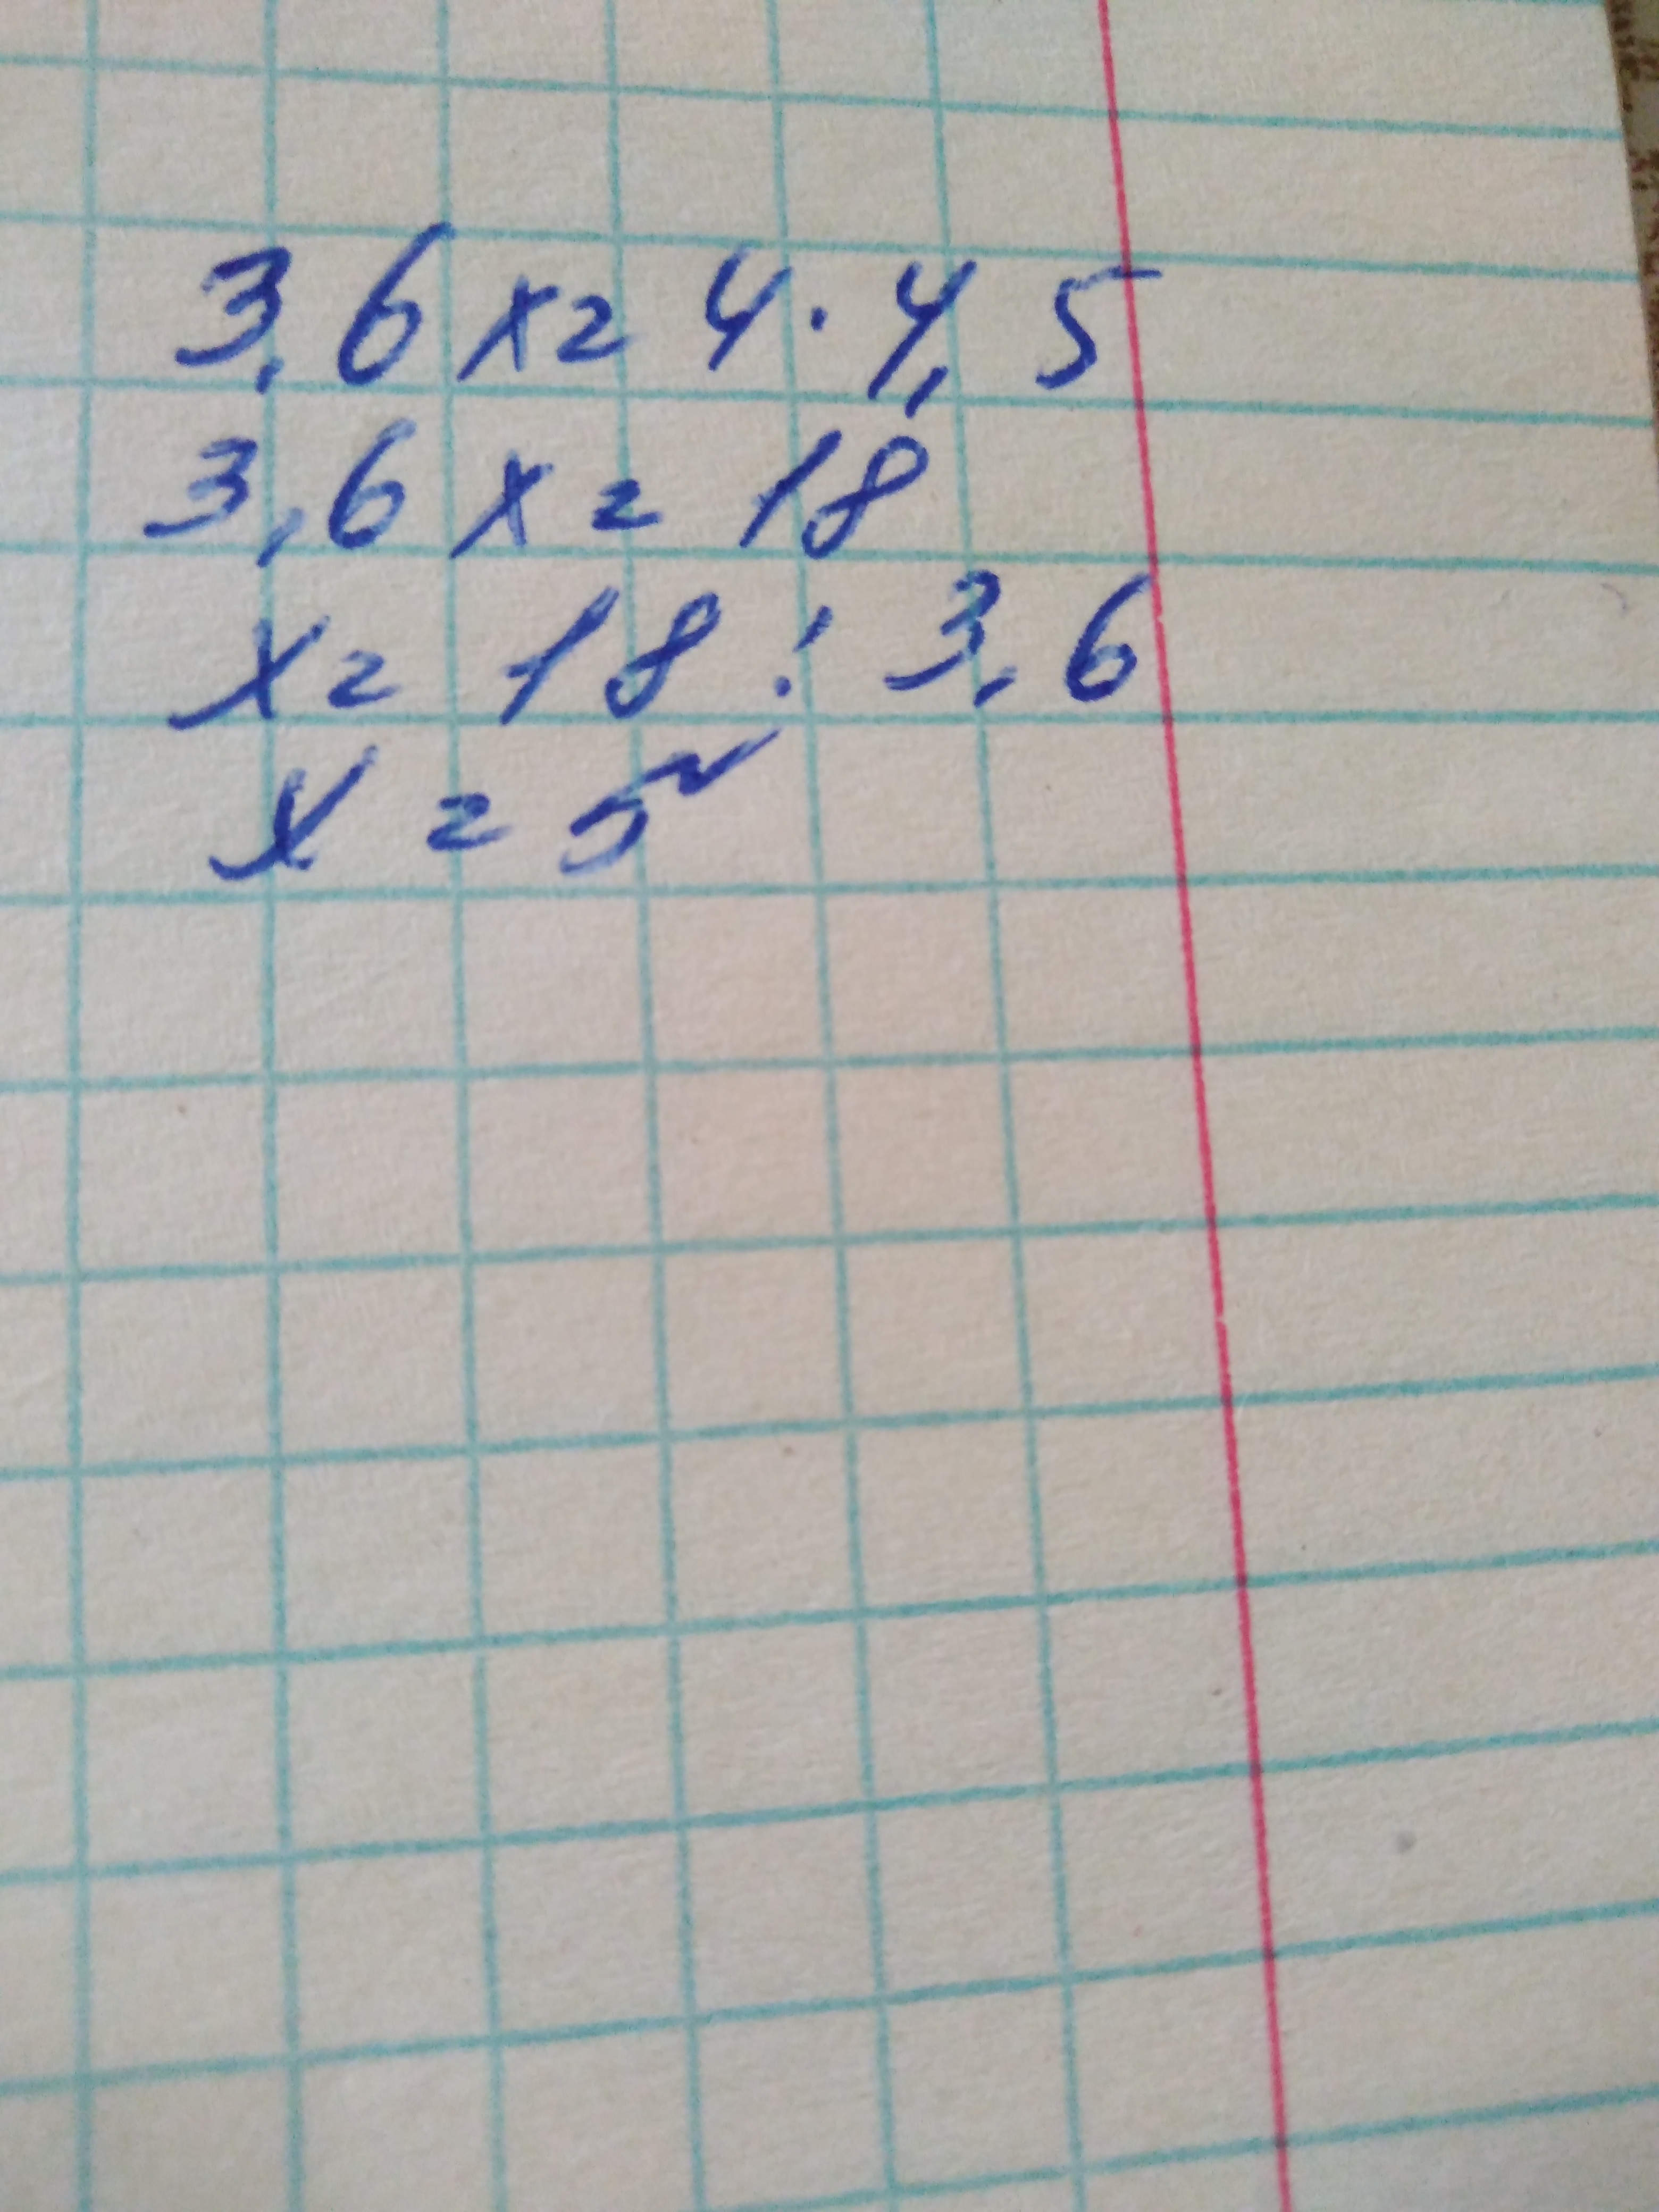 3,6x=4·4,5
3,6x=18
x=18:3,6
x=5